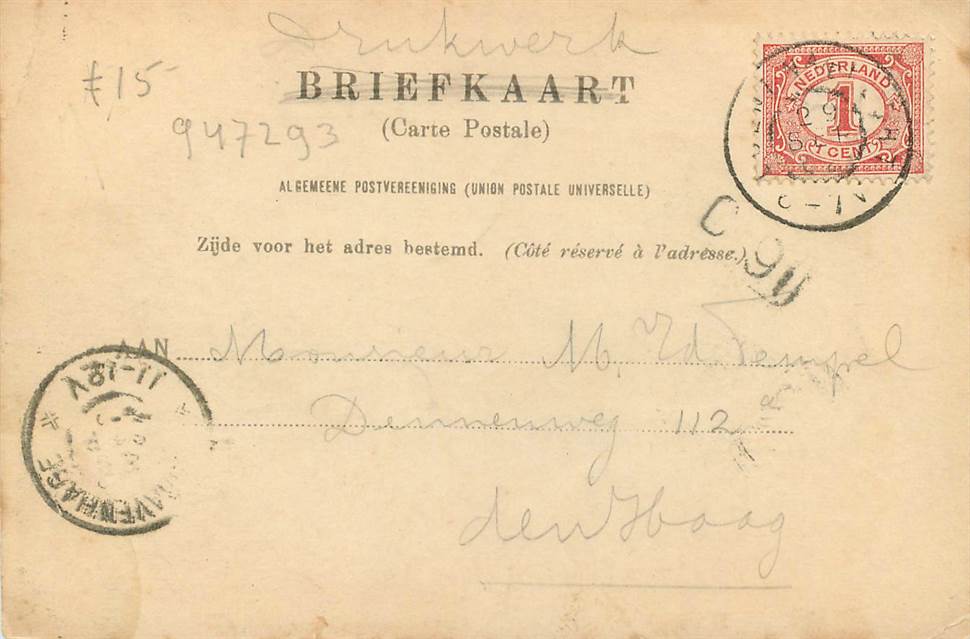 Drukwerk
BRIEFKAART
(Carte Postale)
ƒ15-
947293
ALGEMEENE POSTVEREENIGING (UNION POSTALE UNIVERSELLE)
Zijde voor het adres bestemd. (Côté réservé à l'adresse.)
NEDERLAND
1
1 CENT
AAN Monsieur M. v.d. Tempel
Dennenweg 112
den Haag
11-12V